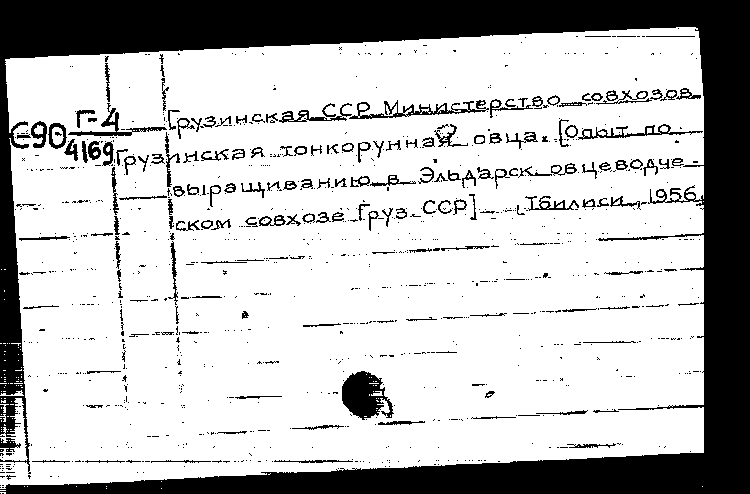 Г-4
С90
4169
Грузинская ССР Министерство совхозов
Грузинская тонкорунная овца. [Опыт по
выращиванию в Эльдарск. овцеводче-
ском совхозе Груз. ССР] Тбилиси, 1956,